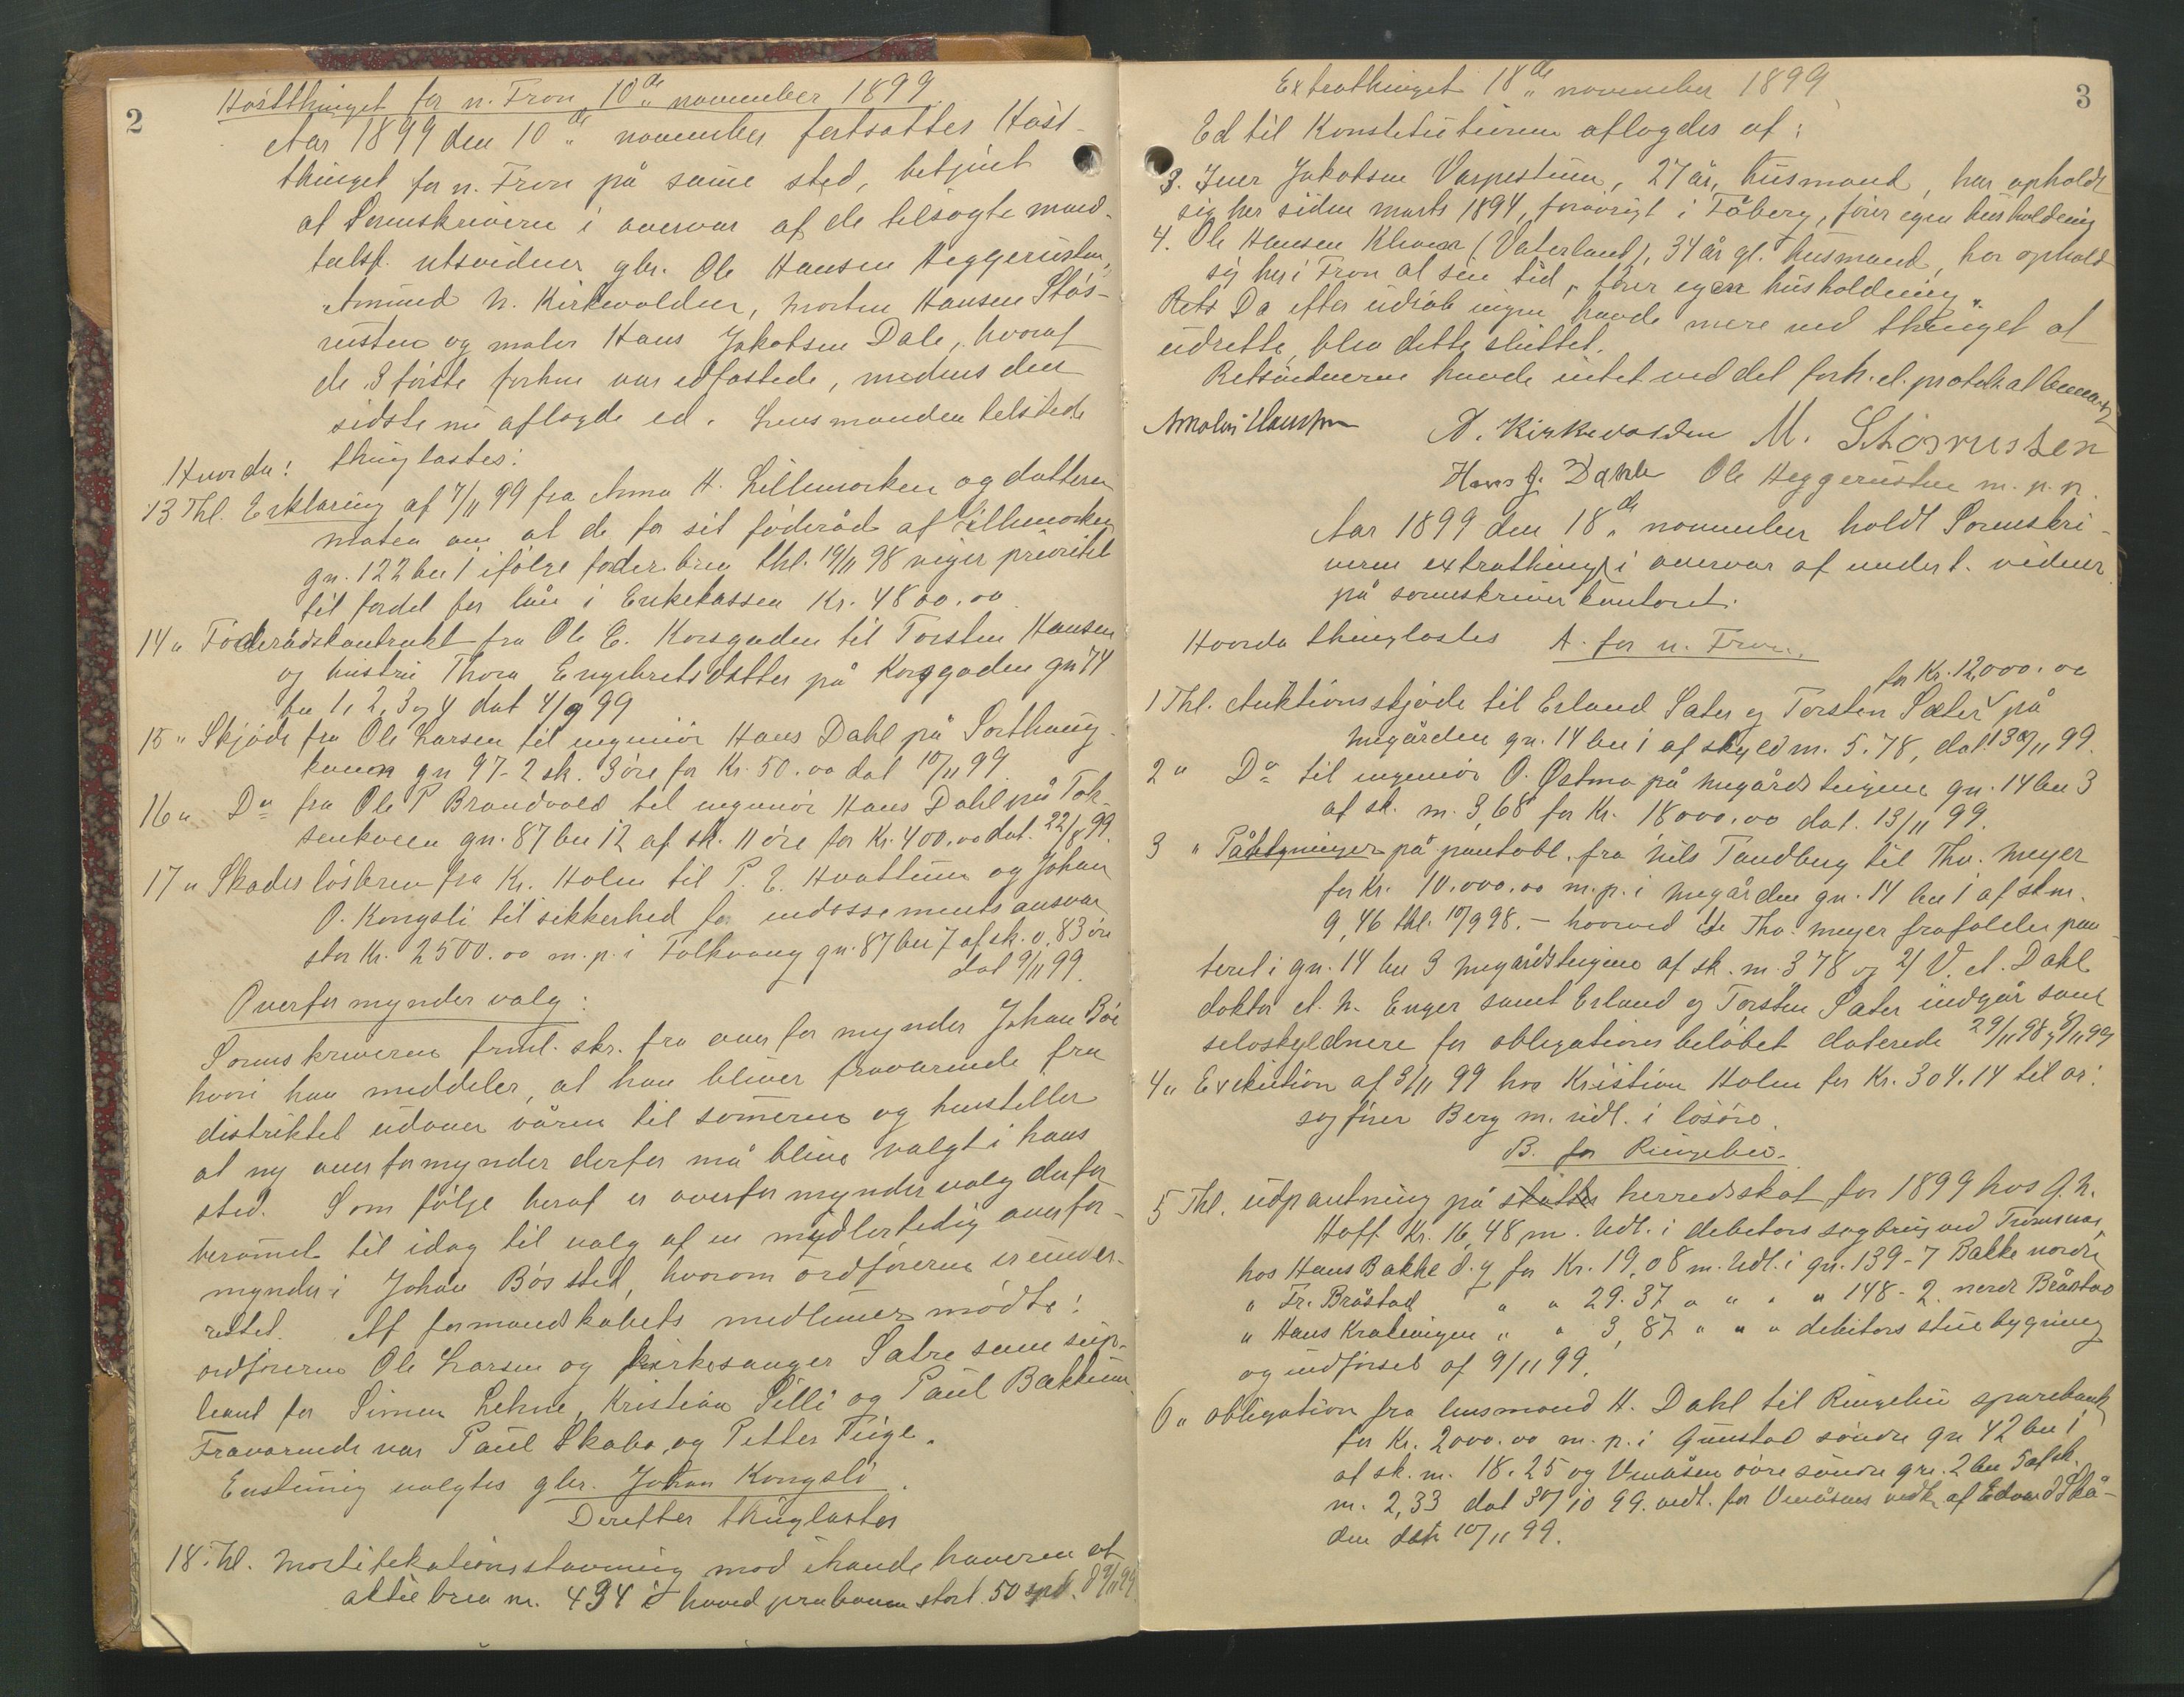 2
Høstthinget for n. Fron 10de november 1899.
Aar 1899 den 10de november fortsattes Høst-
thinget for n. Fron på samme sted, betjent
af Sorenskriveren i overvær af de tilsagte mand-
talsf. retsvidner gbr. Ole Hansen Heggerusten,
Amund N. Kirkevolden, Morten Hansen Stás-
rusten og maler Hans Jakobsen Dale, hvoraf
de 3 første forhen var edfæstede, medens den
sidste nu aflagde ed. Lensmanden tilstede
Hvorda: thinglæstes:
13 Thl. Erklæring af 7/11 99 fra Anna H. Lillemorken og datteren
Maten om at de for sit føderåd af Lillemorken
gn. 122 bn 1 ifølge føder. brev thl. 19/11 98 viger prioritet
til fordel for lån i Enkekassen Kr. 4800.00
14 " Føderådskontrakt fra Ole E. Korsgaden til Torsten Hansen
og hustru Thora Engebretsdatter på Korsgaden gn 74
bn 1, 2, 3 og 4 dat 4/9 99
15 " Skjøde fra Ole Larsen til ingeniør Hans Dahl på Sorthaug-
kvern gn 97-2 sk. 3 øre for Kr. 50.00 dat 10/11 99
16 " Do fra Ole P Brandvold til ingeniør Hans Dahl på Tok-
senkveen gn. 87 bn 12 af sk. 11 øre for Kr. 400.00 dat. 22/8 99.
17 " Skadesløsbrev fra Kr. Holen til P. E. Hvattum og Johan
O. Kongsli til sikkerhed for endossements ansvar
stor Kr. 2500.00 m. p. i Folkvang gn. 87 bn 7 af sk. 0.83 øre
dat 9/11 99.
Overformyndervalg:
Sorenskriveren freml. skr. fra overformynder Johan Bøe
hvori han meddeler, at han bliver fraværende fra
distriktet udover våren til sommeren og henstiller
at ny overformynder derfor må blive valgt i hans
sted. Som følge heraf er overformyndervalg derfor
berammet til idag til valg af en midlertidig overfor-
mynder i Johan Bøs sted, hvorom ordføreren er under-
rettet. Af formandskabets medlemmer mødte:
ordføreren Ole Larsen og kirkesanger Sætre som sup-
leant for Simen Lehne, Kristian Silli og Paul Bakkum.
Fraværende var Paul Skabo, og Petter Fuge.
Enstemig valgtes gbr. Johan Kongsli.
Derefter thinglæstes
18 Thl. Mortifikationsstævning mod ihændehaveren af
aktiebrev nr. 434 i hovedprøbanen stort. 50 spd. d 9/11 99.
Extrathinget 18de november 1899
3
Ed til Konstitutionen aflagdes af:
3. Iver Jakobsen Varpestuen, 27 år, husmand, har opholdt
sig her siden marts 1894, forøvrigt i Fåberg, fører egen husholdning
4. Ole Hansen Kleiven (Vaterland), 34 år gl. husmand, har opholdt
sig her i Fron al sin tid, fører egen husholdning.
Rets Da efter udråb ingen havde mere ved thinget at
udrette, blev dette sluttet.
Retsvidnerne havde intet ved det forh. el. protok. at bemærke
A. Kirkevolden M. Stosrusten
Hans J. Dahle Ole Heggerusten m. p. p.
Aar 1899 den 18de november holdt Sorenskri-
veren extrathing i overvær af undert. vidner
på sorenskriverkontoret.
Hvorda thinglæstes A. for n. Fron.
for Kr. 12,000.00
1 Thl. Auktionsskjøde til Erland Sæter og Torsten Sæter på
Megården gn. 14 bn 1 af skyld m. 5.78, dat. 13/11 99.
2 " Do til ingeniør O. Østmo på Megårdsteigene gn. 14 bn 3
af sk. m. 3,68 for Kr. 18000.00 dat. 13/11 99.
3 " Påtegninger på pantobl. fra Nils Tandberg til Tho. Meyer
for Kr. 10.000.00 m. p. i Megården gn. 14 bn 1 af sk m.
9,46 thl. 10/9 98. – hvorved 1/ Tho. Meyer frafalder pan-
teret i gn. 14 bn 3 Megårdsteigene af sk. m. 3 78 og 2/ V. A. Dahl
doktor A. N. Enger samt Erland og Torsten Sæter indgår som
selvskyldnere for obligationsbeløbet daterede 29/11 98 og 9/11 99
4 " Exekution af 3/11 99 hos Kristian Holen for Kr. 304.14 til or.
sagfører Berg m. udl. i løsøre.
B. for Ringebu.
5 Thl. udpantning på herredsskat for 1899 hos J. N.
Hoff Kr. 16,48 m. Udl. i debitors sagbrug ved Tromsnæs
hos Hans Bakke d. y for Kr. 19,08 m. Udl. i gn. 139-7 Bakke nordre
" Fr. Bråstad " " 29.37 " " " " 148-2 nordr Bråstad
" Hans Kralevigen " " 3,87 " " " debitors stuebygning
og indførsel af 9/11 99.
6 " obligation fra lensmand H. Dahl til Ringebu sparebank
for Kr. 2000.00 m. p. i Gunstad søndre gn 42 bn 1
af sk. m. 18.25 og Venåsen øvre søndre gn. 2 bn 5 af sk.
m. 2,33 dat 30/10 99. vedt. for Venåsens vedk. af Edvard Skå-
den dat 10/11 99.